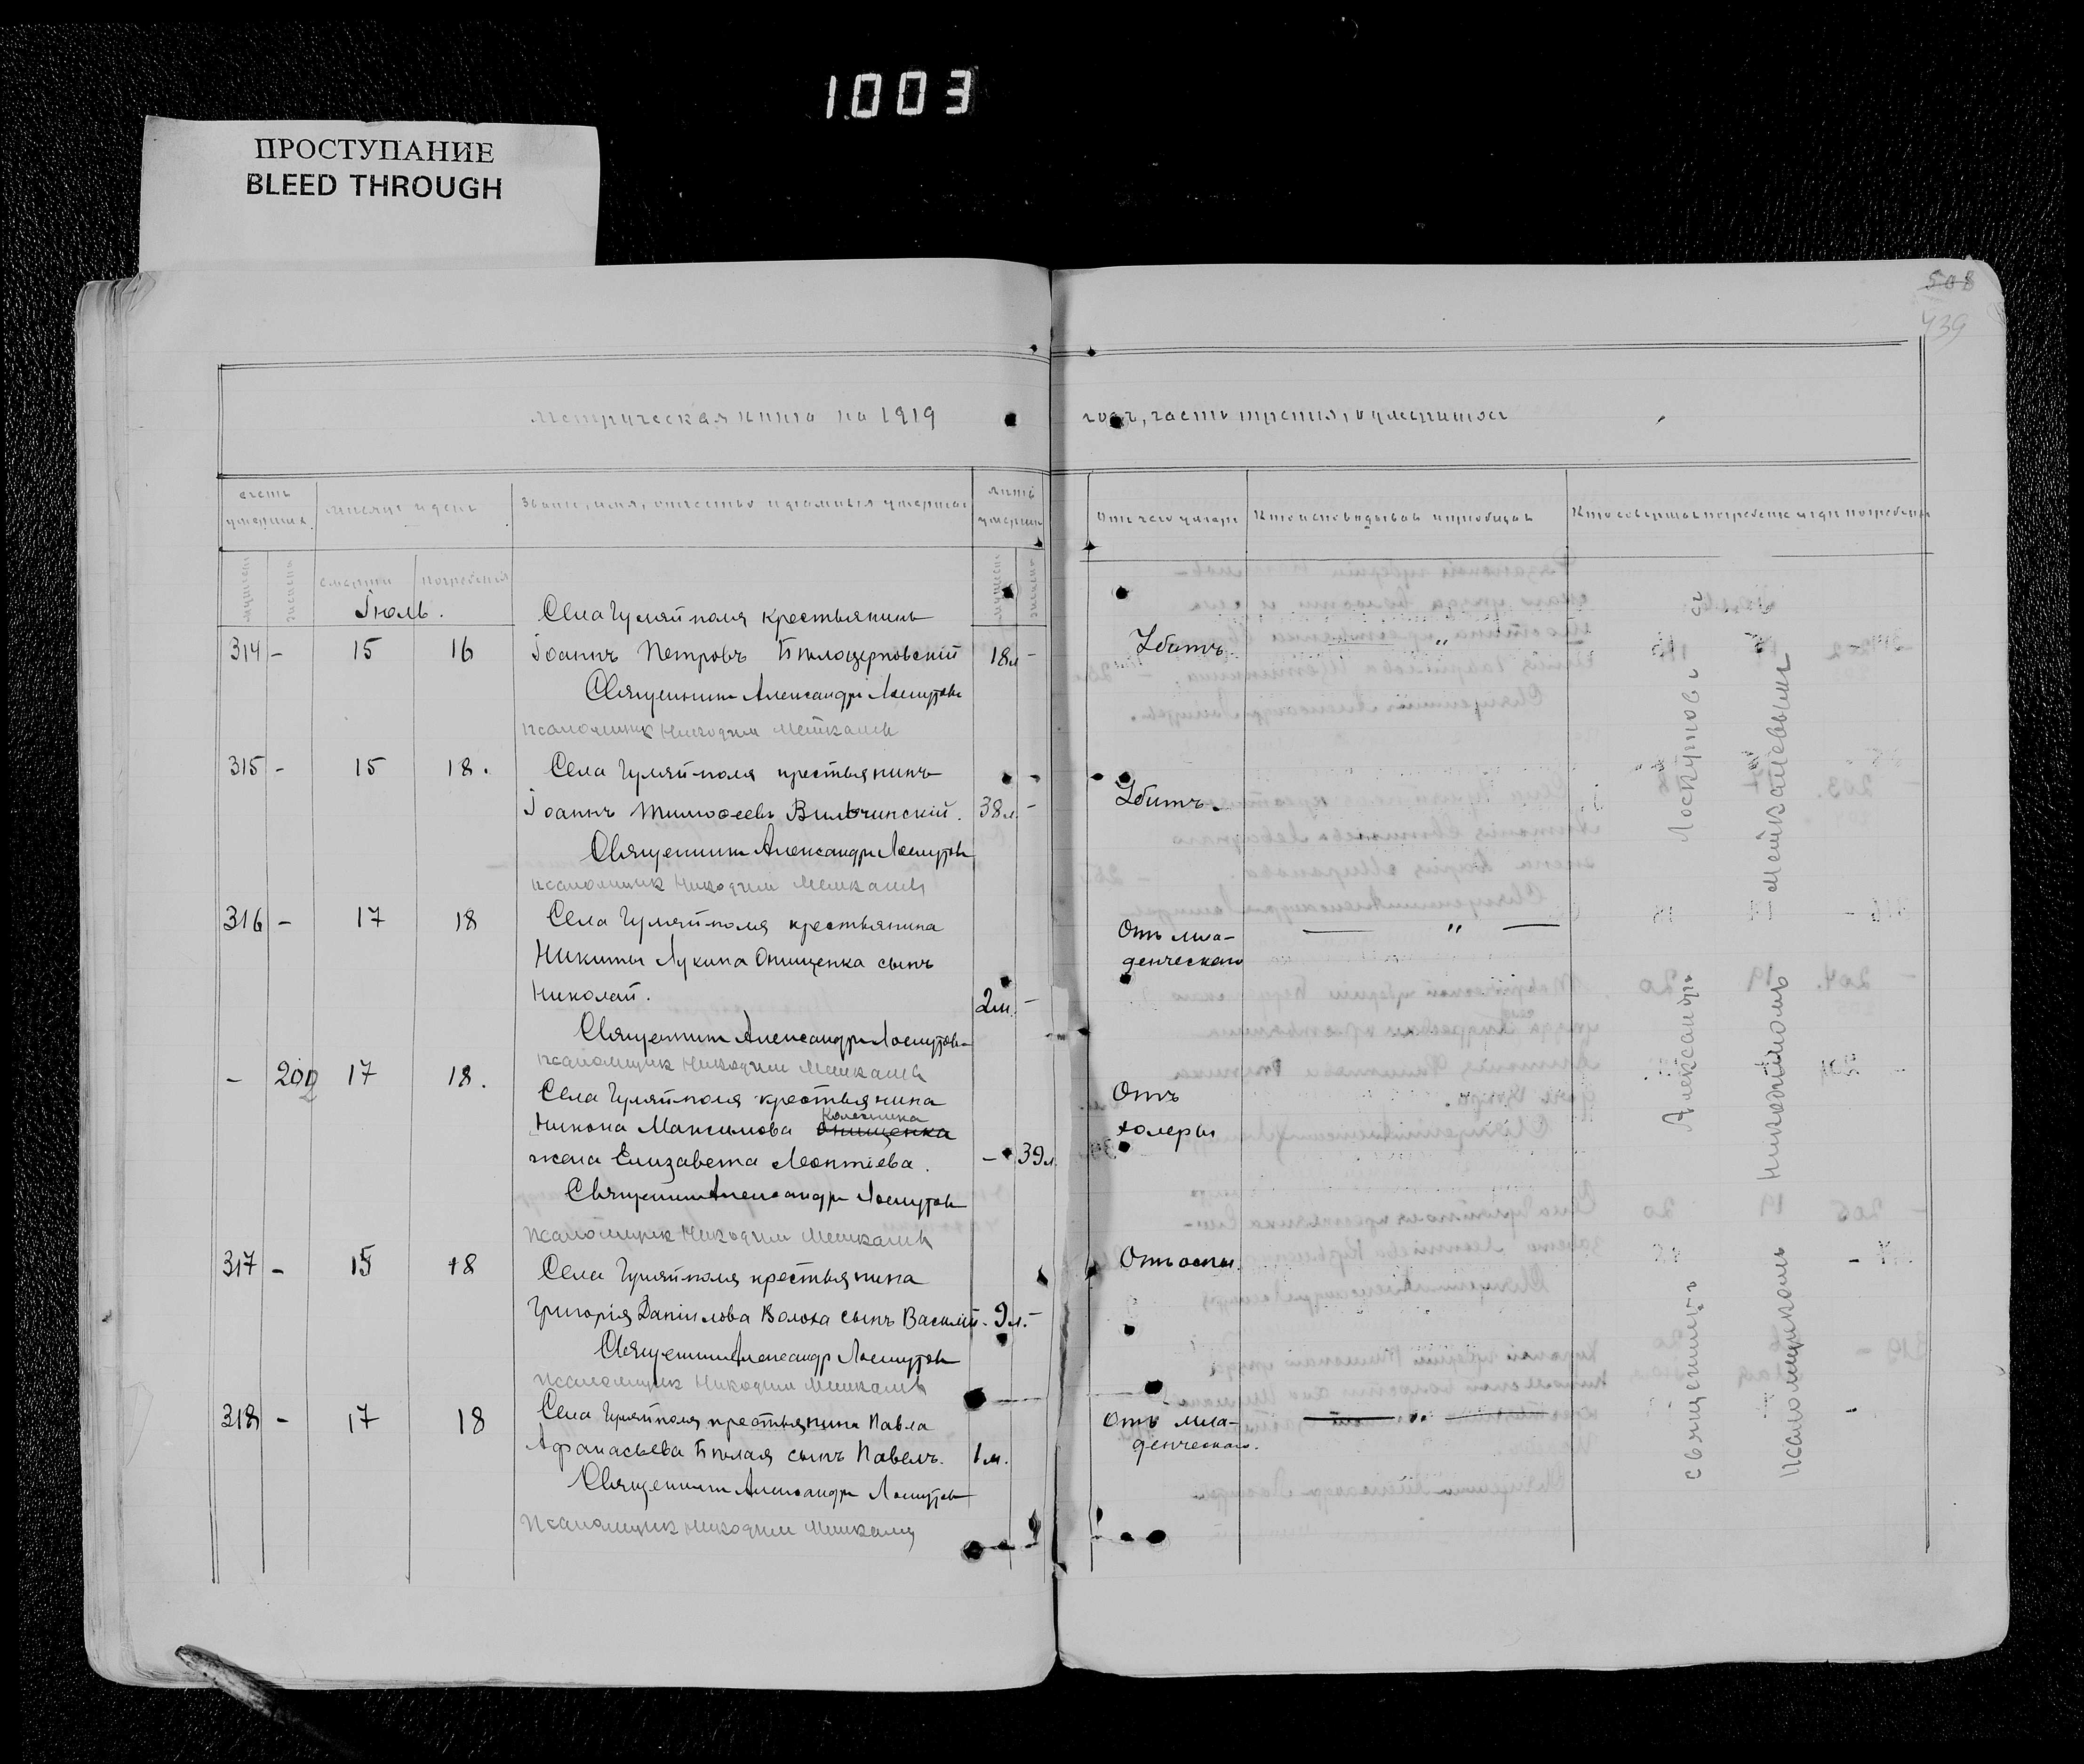 1003
ПРОСТУПАНИЕ
BLEED THROUGH
508
439
Метрическая книга на 1919
годъ, часть третья, о умершихъ
счетъ умершихъ
мѣсяцъ и день
Званіе, имя, отчество и фамилія умершаго
лѣта умерших
Отъ чего умеръ
Кто исповѣдывалъ и пріобщалъ
Кто совершалъ погребеніе и гдѣ погребены
мужеска
женска
смерти
погребенія
мужеска
женска
Іюль.
Села Гуляйполя крестьянинъ
314 - 15 16 Іоаннъ Петровъ Бѣлоцерковскій 18л - Убитъ — " —
Священникъ Александръ Лоскутовъ
псаломщикъ Никодимъ
315 - 15 18. Села Гуляйполя крестьянинъ
Іоаннъ Тимоѳеевъ Вильчинскій. 38л. - Убитъ.
Священникъ Александръ Лоскутовъ
псаломщикъ Никодимъ
316 - 17 18 Села Гуляйполя крестьянина Отъ мла- — " —
Никиты Лукина Онищенка сынъ денческаго
Николай. 2м. -
Священникъ Александръ Лоскутовъ
псаломщикъ Никодимъ
- 202 17 18. Села Гуляйполя крестьянина Отъ
Никона Максимова Онищенка холеры
жена Елизавета Леонтіева. - 39л.
Священникъ Александръ Лоскутовъ
псаломщикъ Никодимъ
317 - 15 18 Села Гуляйполя крестьянина Отъ оспы.
Григорія Даніилова Волоха сынъ Василій. 9л. -
Священникъ Александръ Лоскутовъ
псаломщикъ Никодимъ
318 - 17 18 Села Гуляйполя крестьянина Павла Отъ мла- — " —
Аѳанасьева Бѣлая сынъ Павелъ. 1м. денческаго.
Священникъ Александръ Лоскутовъ
псаломщикъ Никодимъ
священникъ Александръ Лоскутовъ
псаломщикъ Никодимъ